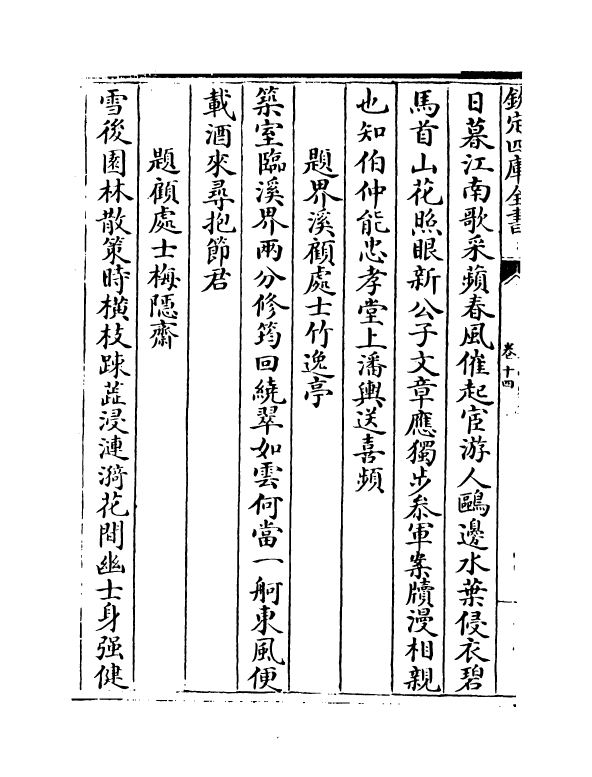 欽定四庫全書
卷十四
日暮江南歌采蘋春風催起宦游人鷗邊水葉侵衣碧
馬首山花照眼新公子文章應獨步叅軍案牘漫相親
也知伯仲能忠孝堂上潘輿送喜頻
題界溪顧處士竹逸亭
築室臨溪界兩分修筠回繞翠如雲何當一舸東風便
載酒來尋抱節君
題顧處士梅隱齋
雪後園林散策時橫枝踈蘂浸漣漪花間幽士身强健